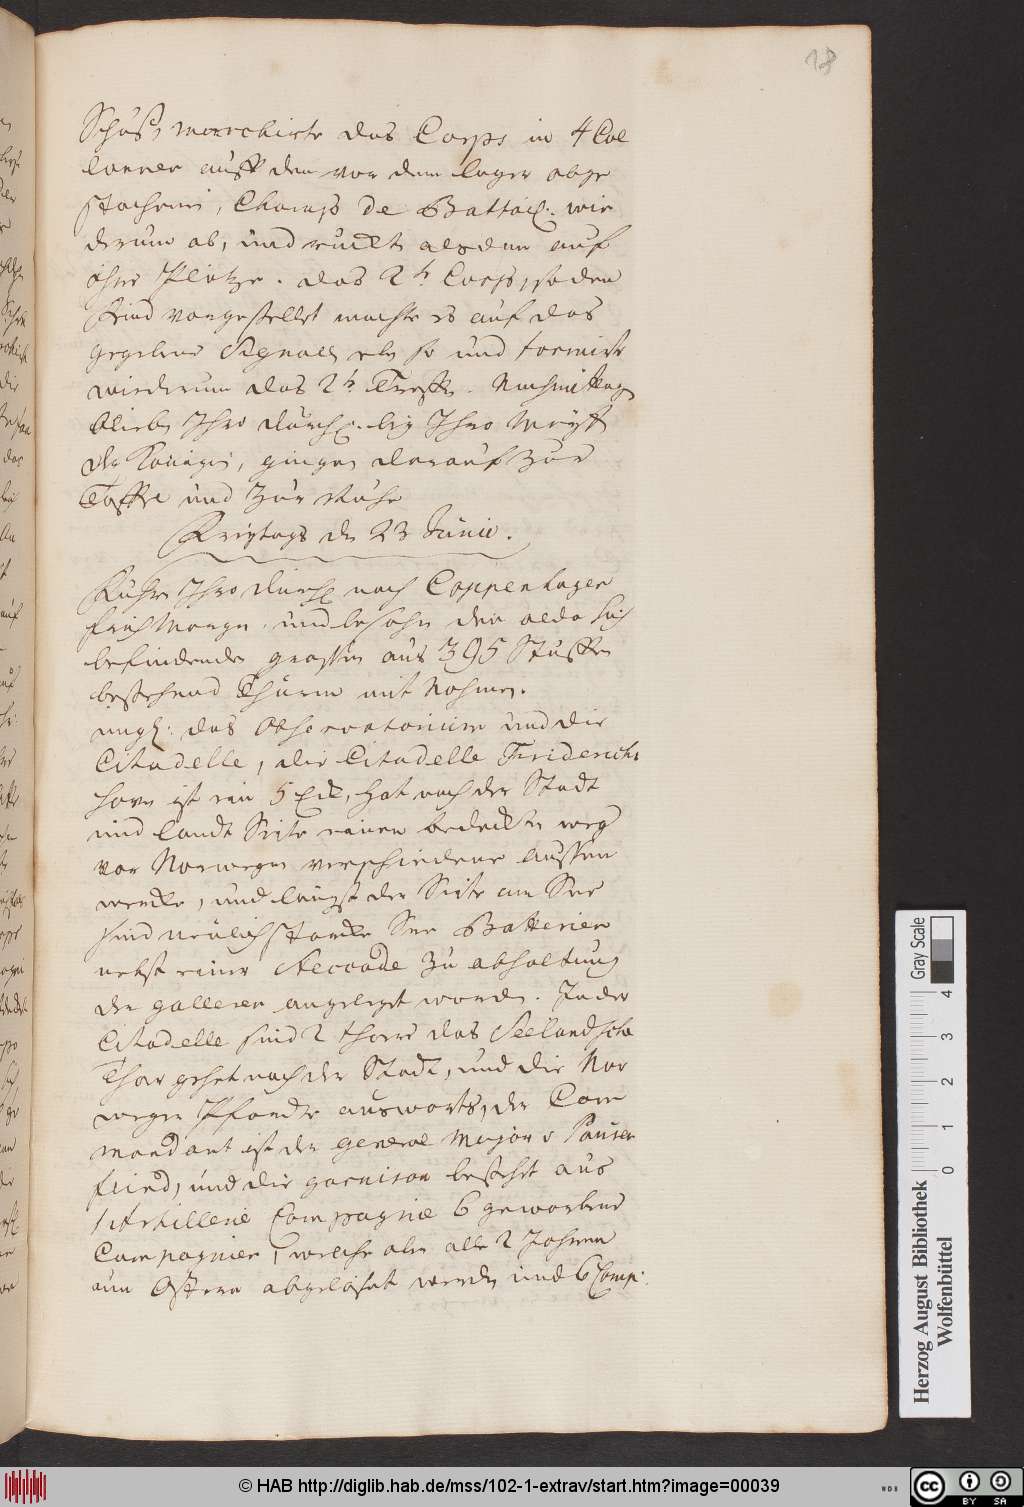 18
Schuß, marchirte das Corps in 4 Col
lonnen auff den vor dem lager abge
stochenen, Champ de Battail: wie
derum ab, und ruckte alsdenn auf
ihre Plätze. das 2te Corps, so den
Feind vorgestellet machte es auf das
gegebene Signall eben so und formirte
wiederum das 2te Treff. Nachmittag
blieben Ihro Durchl. bey Ihro Mayst
der Königin, gingen darauf zur
Taffel und zur Ruhe
Freytags den 23 Junii.
Fuhren Ihro Durchl nach Coppenhagen
früh Morgen, und besahen den alda sich
befindenden grossen aus 395 Stuffen
bestehend Thurm mit Nahmen.
imgl: das Observatorium und die
Citadelle, die Citadelle Friderichs
haven ist ein 5 Eck, hat nach der Stadt
und landt Seite einen bedeckten weg
vor Norwegen verschiedene aussen
wercke, und längst der Seite am See
sind neulich starcke See Batterien
nebst einer Steccade zu abhaltung
der galleren angeleget worden. In der
Citadelle sind 2 thore das Seelandsche
Thor gehet nach der Stadt, und die Nor
weger Pforte auswärts, der Com
mandant ist der general Major v
feind, und die garnison bestehet aus
1 Artillerie Compagnie 6 geworbene
Compagnien, welche alle 2 Jahren
um Ostern abgelöset werden und 6 Comp:
Gray Scale
0 1 2 3 4
Herzog August Bibliothek
Wolfenbüttel
© HAB http://diglib.hab.de/mss/102-1-extrav/start.htm?image=00039
WDB
cc BY SA